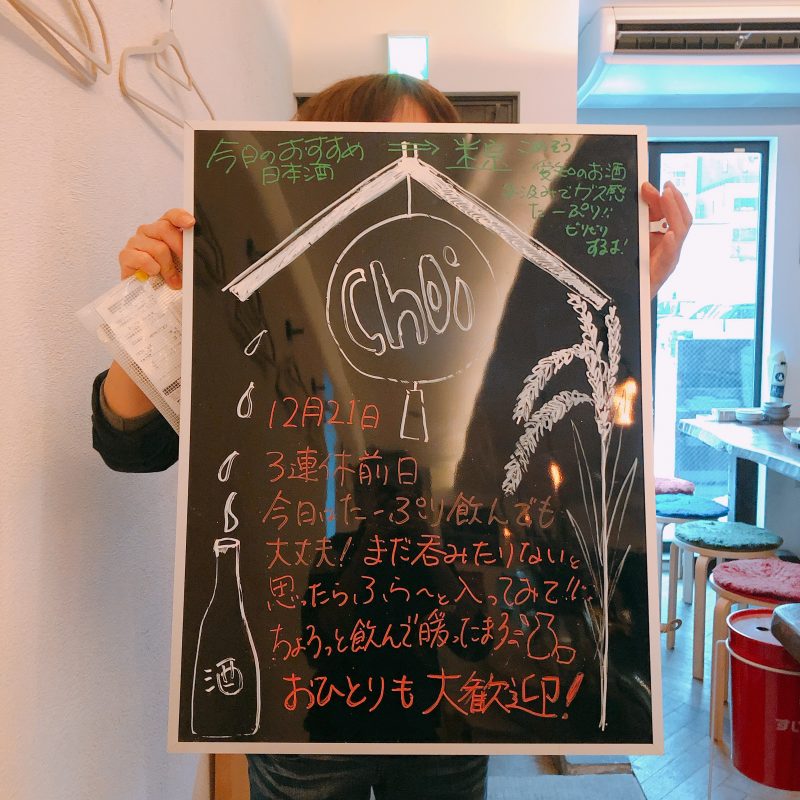 今日のおすすめ
日本酒
⇒ 米宗 こめそう
愛知のお酒
ガス感
たーぷり!!
ピリピリ
するよ!
Choi
12月21日
3連休前日
今日はたーぷり飲んでも
大丈夫!まだ呑みたりないと
思ったら、ふら〜と入ってみて!!
ちょろっと飲んで暖ったまろ
おひとりも大歓迎!
酒